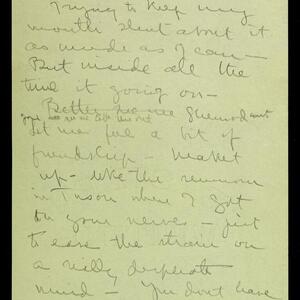 Trying to keep my
mouth shut about it
as much as I can —
But inside all the
time it going on —
Better
let me feel a bit of
friendship — makes
up — like the
in Tucson when I got
on your nerves — just
to ease the strain on
a really desperate
mind — You don't have